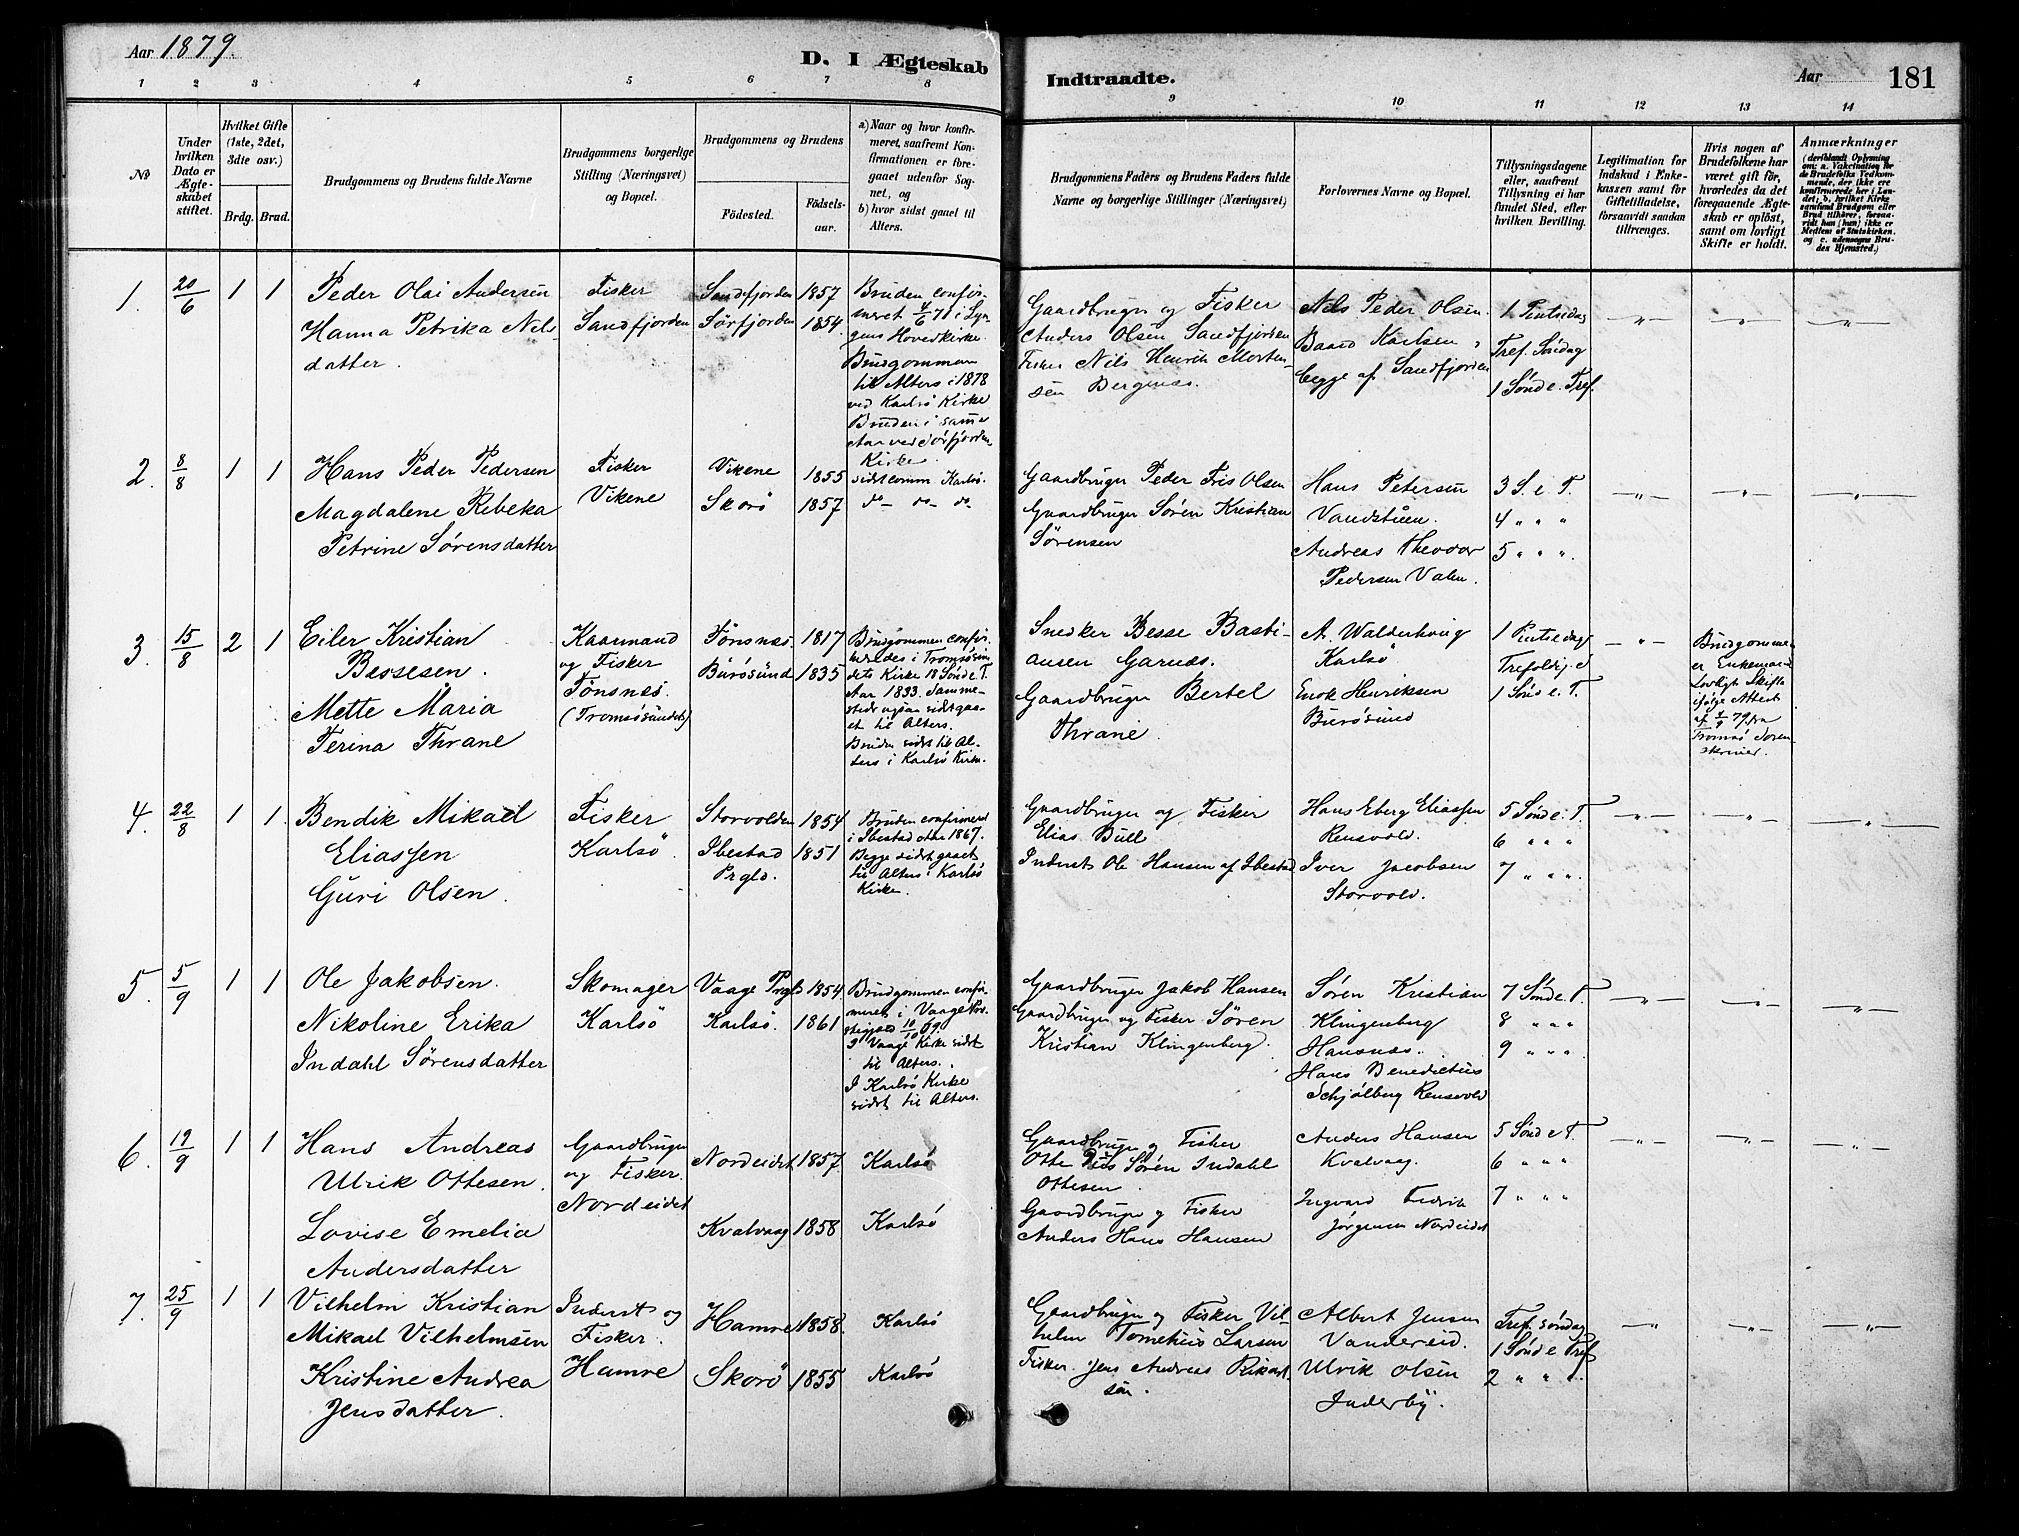 Aar 1879.
D. I Ægteskab
Indtraadte.
Aar
181
1 2 3 4 5 6 7 8
9 10 11 12 13 14
No
Under hvilken Dato er Ægteskabet stiftet.
Hvilket Gifte (1ste, 2det, 3die osv.)
Brdg. Brud.
Brudgommens og Brudens fulde Navne
Brudgommens borgerlige Stilling (Næringsvei) og Bopæl.
Brudgommens og Brudens
Fødested.
Fødselsaar.
a) Naar og hvor konfirmeret, saafremt Konfirmationen er foregaaet udenfor Sognet, og
b) hvor sidst gaaet til Alters.
Brudgommens Faders og Brudens Faders fulde Navne og borgerlige Stillinger (Næringsvei)
Forlovernes Navne og Bopæl.
Tillysningsdagene eller, saafremt Tillysning ei har fundet Sted, efter hvilken Bevilling.
Legitimation for Indskud i Enkekassen samt for Giftetilladelse, forsaavidt saadan tiltrænges.
Hvis nogen af Brudefolkene har været gift før, hvorledes da det foregaaende Ægteskab er opløst, samt om lovligt Skifte er holdt.
Anmærkninger
(deriblandt Oplysning om: a. Vakcination for de Brudefolks Vedkommende, der ikke ere konfirmerede her i Landet; b. hvilket Kirkesamfund Brudgom eller Brud tilhører, forsaavidt han (hun) ikke er Medlem af Statskirken, og c. udensogns Brudes Hjemsted.)
1. 20/6 1 1
Peder Olai Andersen
Hanna Petrika Nils
datter.
Fisker
Sandfjorden
Sandfjorden 1857
Sørfjorden 1854.
Bruden confir-
meret 4/6 71 i Lyn-
gens Hovedkirke.
Brudgommen
til Alters i 1878
ved Karlsö Kirke
Bruden i samme
Aar ved Sörfjorden
Kirke.
Gaardbruger og Fisker
Anders Olsen Sandfjorden
Fisker Nils Henrik Morten-
sen
Nils Peder Olsen.
Baard Karlsen,
begge af Sandfjorden
1 Pintsedag
Tref. Søndag
1 Sönd e. Tref.
2. 8/8 1 1
Hans Peder Pedersen
Magdalene Rebeka
Petrine Sørensdatter
Fisker
Vikene
Vikene 1855
Skorö 1857
sidst comm Karlsö.
do do do
Gaardbruger Peder Friis Olsen
Gaardbruger Sören Kristian
Sörensen
Hans Petersen
Vandstuen.
Andreas Theodor
Pedersen Valen.
3 S. e T.
4 " " "
5 " " "
3. 15/8 2 1
Eiler Kristian
Bessesen.
Mette Maria
Ferina Thrane
Kaarmand
og Fisker
Tönsnes.
(Tromsösundet)
Tönsnes. 1817
Burösund 1835
Brudgommen confir-
meredes i Tromsösun
dets Kirke 18 Sönd e. T.
Aar 1833. Samme-
steds ogsaa sidst gaa-
et til Alters.
Bruden sidst til Al-
ters i Karlsö Kirke.
Snedker Besse Basti-
ansen Garnæs.
Gaardbruger Bertel
Thrane.
A. Walderhaug
Karlsö
Enok Henriksen
Burösund
1 Pintsedag
Trefoldigh. S
1 Sönd e. T.
Brudgommen
er Enkemand
Lovligt Skifte
ifölge Attest
fra
Tromsö Soren-
skriver.
4. 22/8 1 1
Bendik Mikael
Eliassen
Guri Olsen.
Fisker
Karlsö.
Storvolden 1854
Ibestad 1851
Prgld.
Bruden confirmeret
i Ibestad Aar 1867.
Begge sidst gaaet
til Alters i Karlsö
Kirke.
Gaardbruger og Fisker
Elias Bull
Inderst Ole Hansen af Ibestad
Hans Eberg Eliassen
Rensvold.
Iver Jacobsen
Storvold.
5 Sönd e. T.
6 " " "
7 " " "
5. 5/9 1 1
Ole Jakobsen.
Nikoline Erika
Indahl Sørensdatter
Skomager
Karlsö
Vaage Prgld 1854
Karlsö. 1861
Brudgommen confir-
meret i Vaage
10/10 69.
I Vaage Kirke sidst
til Alters.
I Karlsö Kirke
sidst til Alters.
Gaardbruger Jakob Hansen
Gaardbruger og Fisker Sören
Kristian Klingenberg.
Sören Kristian
Klingenberg
Hansnæs.
Hans Benedictus
Schjölberg Rensvold
7 Sönd e. T.
8 " " "
9 " " "
6. 19/9 1 1
Hans Andreas
Ulrik Ottesen.
Lovise Emelia
Andersdatter
Gaardbruger
og Fisker.
Nordeidet
Nordeidet 1857.
Kvalvaag 1858
Karlsö
Karlsö
Gaardbruger og Fisker
Otte Sören Indahl
Ottesen.
Gaardbruger og Fisker
Anders Hans Hansen
Anders Hansen
Kvalvaag.
Ingvard Fredrik
Jørgensen Nordeidet
5 Sönd e T.
6 " " "
7 " " "
7. 25/9 1 1
Vilhelm Kristian
Mikael Vilhelmsen
Kristine Andrea
Jensdatter.
Inderst og
Fisker.
Hamre
Hamre 1858.
Skorö 1855
Karlsö
Karlsö
Gaardbruger og Fisker Vil-
helm Larsen
Fisker. Jens Andreas Rikard
sen.
Albert Jensen
Vandereid.
Ulrik Olsen
Inderby.
Tref. søndag
1 Sönd e Tref
2 " " T.